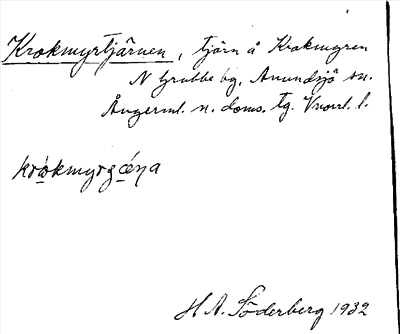 Krokmyrtjärnen, tjärn å Krokmyren
N Grubbe bg, Anundsjö sn.
Ångerml. n. doms. tg. Vnorrl. l.
krokmyrgćŋa
H A. Söderberg 1932